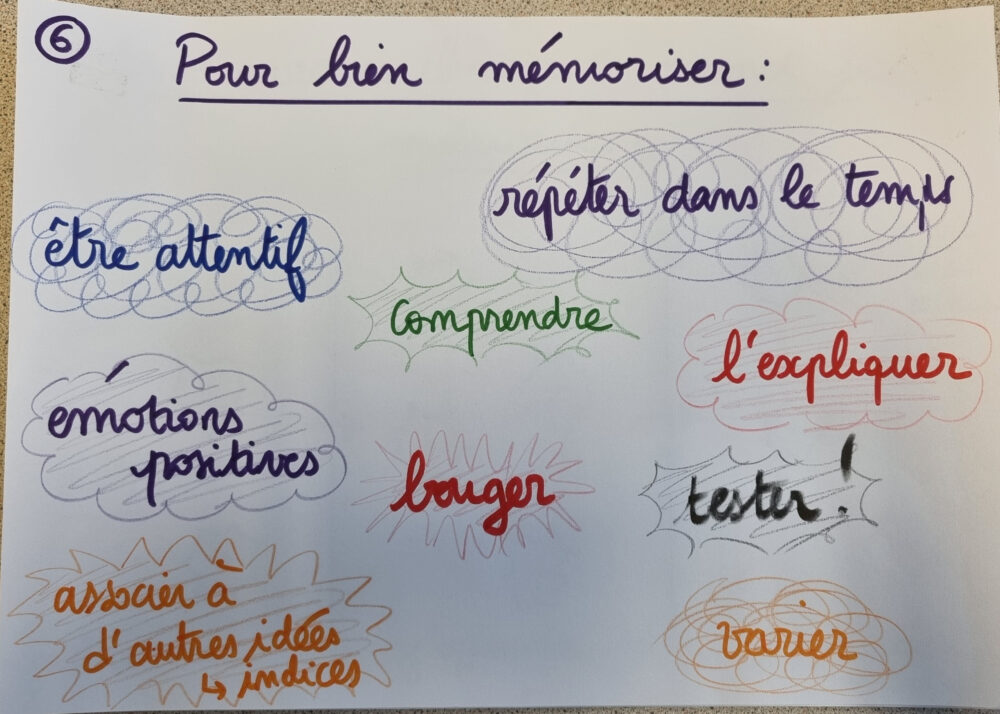 6
Pour bien mémoriser :
répéter dans le temps
être attentif
comprendre
l'expliquer
émotions
positives
bouger
tester !
associer à
d'autres idées
↳ indices
varier